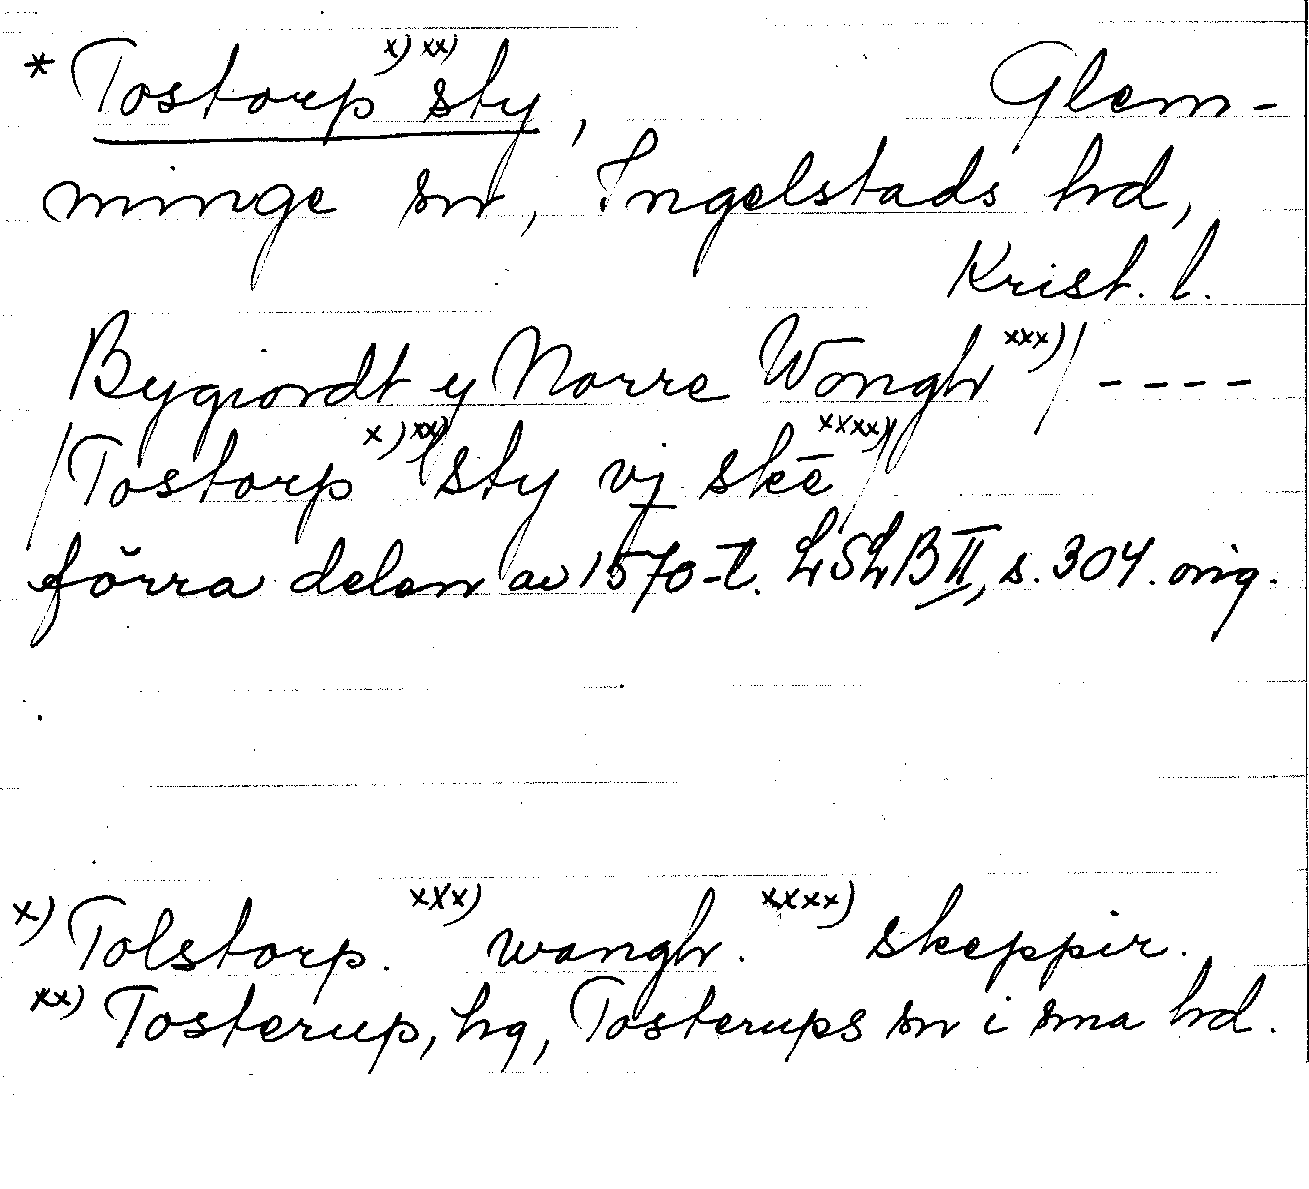 * Tostorp x) xx) sty, Glem-
minge sn, Ingelstads hd,
Krist. l.
Bygiordt y Norre Wongh xxx) / - - - -
/ Tostorp x) xx) sty vj skē xxxx) /
förra delen av 1570-t. LSLB II, s. 304. orig.
x) Tolstorp. xxx) wangh. xxxx) skeppir.
xx) Tosterup, hg, Tosterups sn i sma hd.